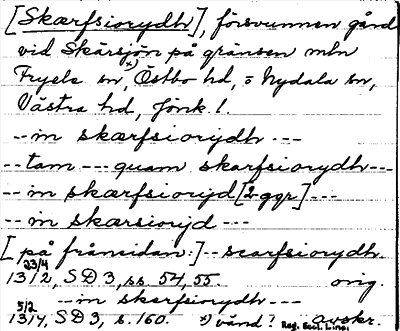 [Skærfsiorydh], försvunnen gård
vid Skärsjön på gränsen mln
Fryele sn,ˣ⁾ Östbo hd, o Nydala sn,
Västra hd, Jönk. l.
-- in skærfsiorydh ---
-- tam --- quam skærfsiorydh --
-- in skærfsioryd [2 ggr] ---
-- in skærsioryd ---
[på frånsidan:] -- scærfsiorydh.
23/4 1312, SD 3, ss. 54, 55. orig.
-- in skerfsiorydh --
5/2 1314, SD 3, s. 160. x) vänd! avskr.
Reg. Eccl. Linc.